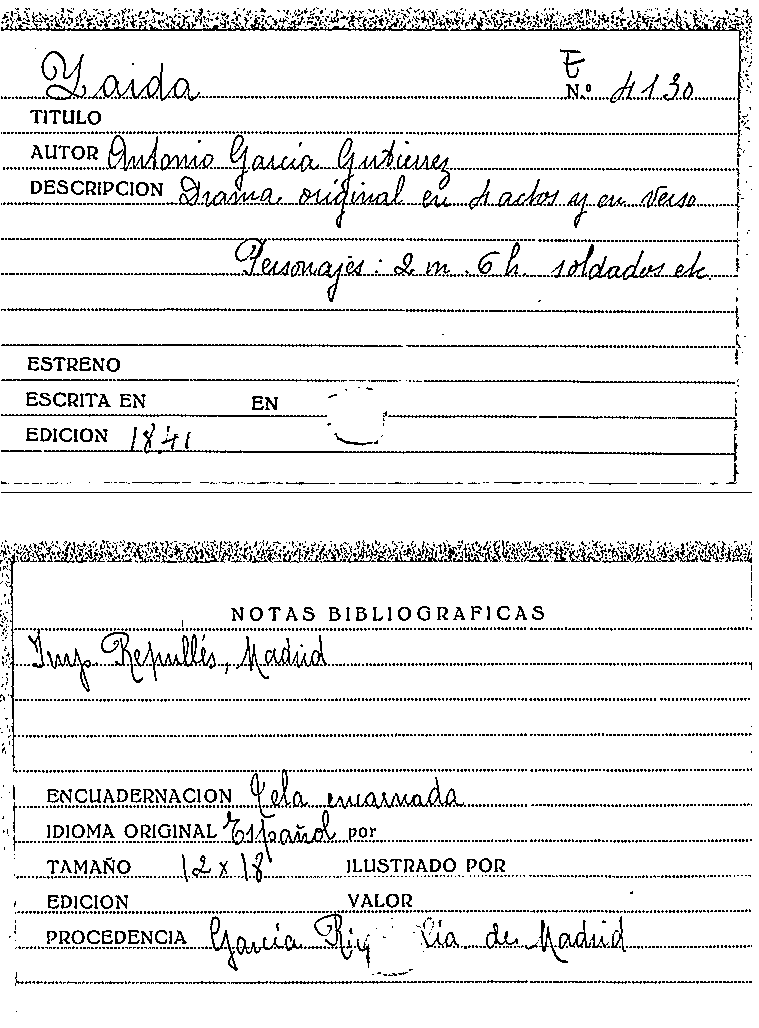 Zaida
E
N.º 4130
TITULO
AUTOR Antonio García Gutierrez
DESCRIPCION Drama original en 4 actos y en verso
Personajes: 2 m. 6 h. soldados etc.
ESTRENO
ESCRITA EN EN
EDICION 1841
NOTAS BIBLIOGRAFICAS
Imp. Repullés, Madrid
ENCUADERNACION Tela encarnada
IDIOMA ORIGINAL Español por
TAMAÑO 12 x 18 ILUSTRADO POR
EDICION VALOR
PROCEDENCIA García de Madrid